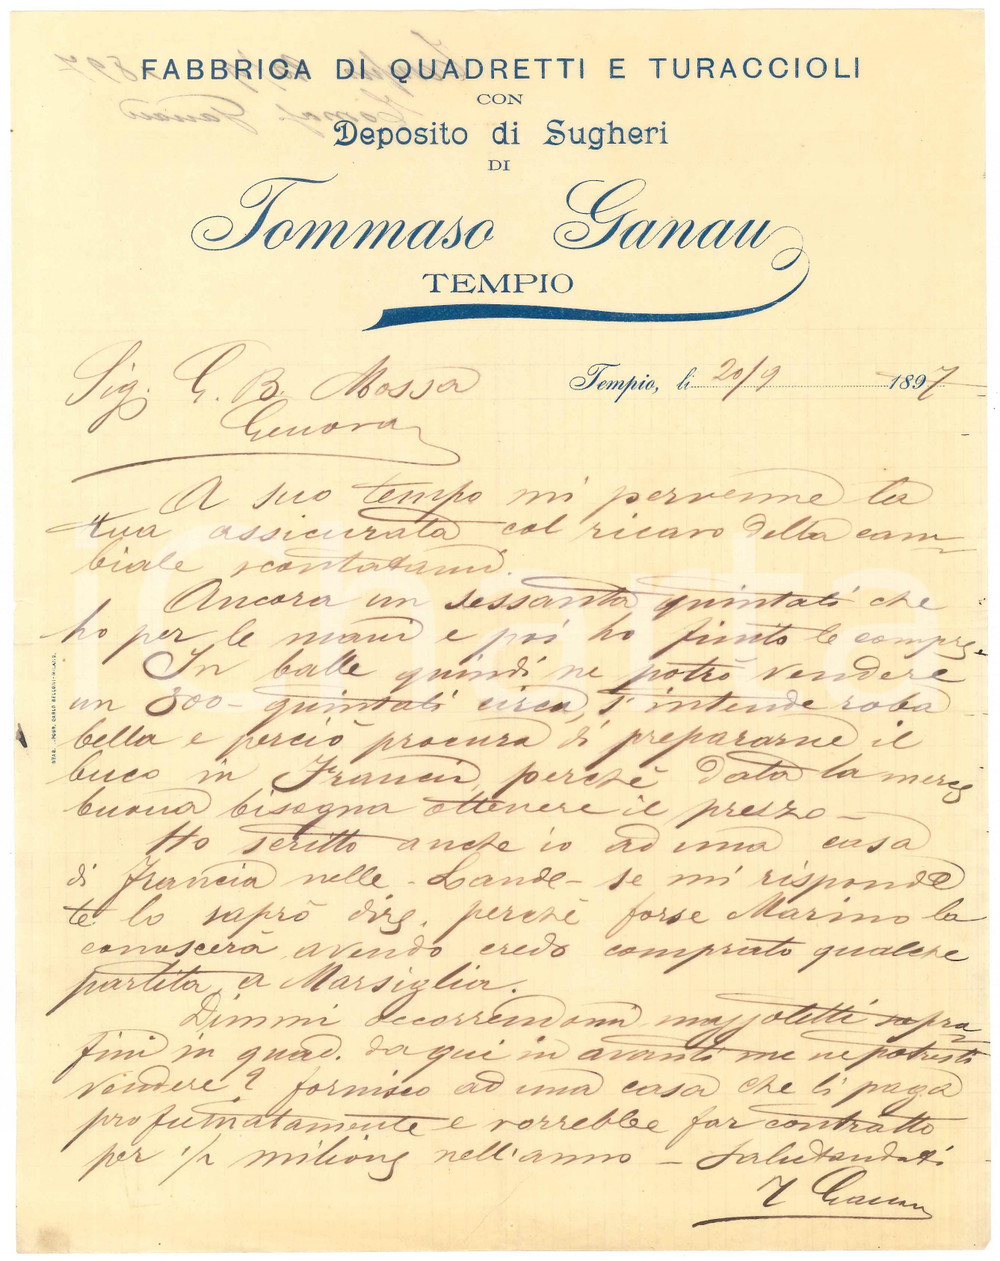 FABBRICA DI QUADRETTI E TURACCIOLI
CON
Deposito di Sugheri
DI
Tommaso Ganau
TEMPIO
Tempio, li 20/9 1897
Sig. G. B. Mossa
Genova
A suo tempo mi pervenne la
tua assicurata col ricavo della cam
biale scontatami.
Ancora un sessanta quintali che
ho per le mani e poi ho finito le compre.
In balle quindi ne potrò vendere
un 800 quintali circa, s'intende roba
bella e perciò procura di prepararne il
buco in Francia, perchè data la merce
buona bisogna ottenere il prezzo -
Ho scritto anche io ad una casa
di Francia nelle - Lande - se mi risponde
te lo saprò dire, perchè forse Marino la
conoscerà avendo credo comprato qualche
partita a Marsiglia.
Dimmi occorrendomi mazzoletti sopra
fini in quad. da qui in avanti me ne potresti
vendere? fornisco ad una casa che li paga
profumatamente e vorrebbe far contratto
per 1/2 milione nell'anno - Salutandoti
T Ganau
STAB. CARLO BELLONI - MILANO.
iCharta